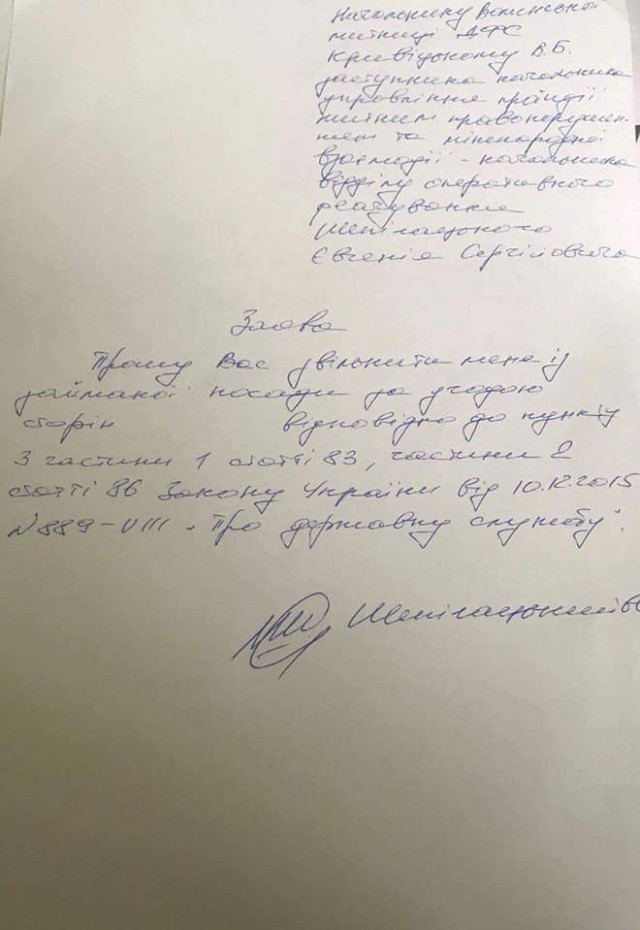 Начальнику Волинської
митниці ДФС
Кривіцькому В.Б.
заступника начальника
управління протидії
митним правопорушен-
ням та міжнародної
взаємодії - начальника
відділу оперативного
реагування
Шепілацького
Євгенія Сергійовича
Заява
Прошу Вас звільнити мене із
займаної посади за угодою
сторін відповідно до пункту
3 частини 1 статті 83, частини 2
статті 86 Закону України від 10.12.2015
N889-VIII "Про державну службу".